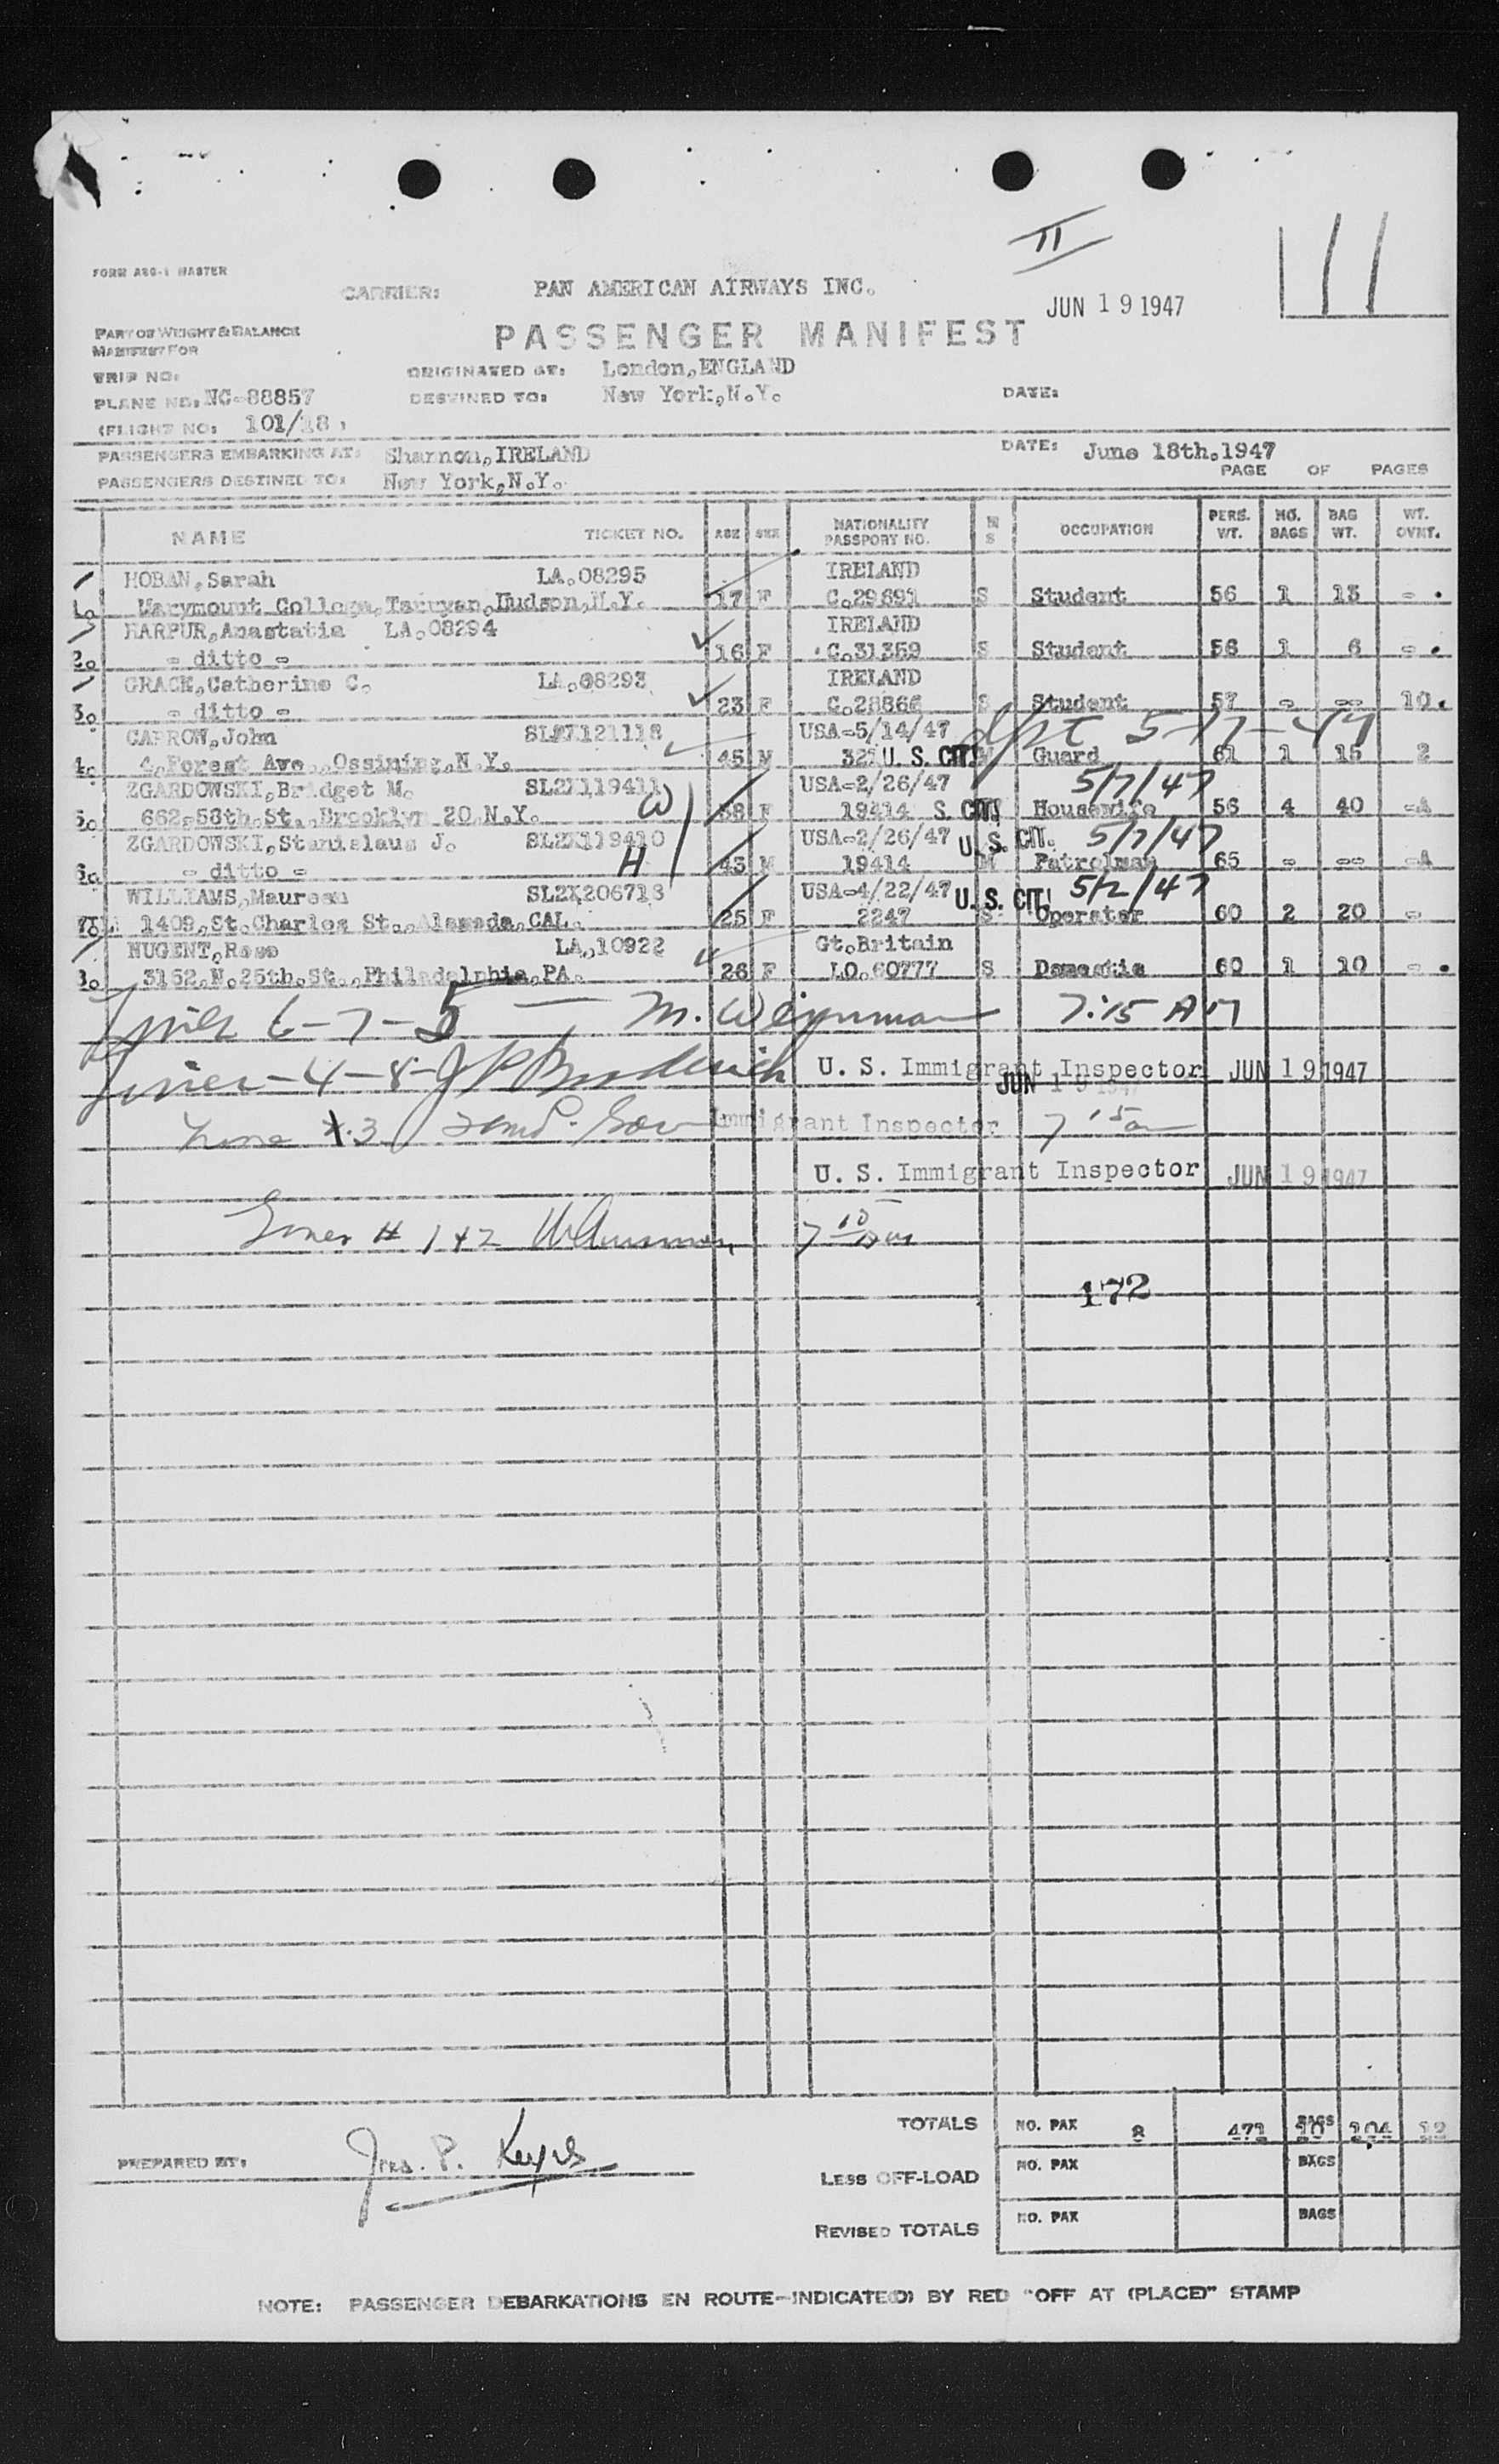 II
11
FORM ASG-1 MASTER
CARRIER: PAN AMERICAN AIRWAYS INC.
JUN 19 1947
PART OF WEIGHT & BALANCE
MANIFEST FOR
PASSENGER MANIFEST
TRIP NO:
ORIGINATED AT: London, ENGLAND
PLANE NO: NC-88857
DESTINED TO: New York, N.Y.
DATE:
(FLIGHT NO: 101/18
PASSENGERS EMBARKING AT: Shannon, IRELAND
DATE: June 18th. 1947
PASSENGERS DESTINED TO: New York, N.Y.
PAGE OF PAGES
NAME TICKET NO. AGE SEX NATIONALITY PASSPORT NO. M S OCCUPATION PERS. WT. NO. BAGS BAG WT. WT. OVNT.
HOBAN, Sarah LA.08295 IRELAND
1. Marymount College, Tarryan, Hudson, N.Y. 17 F C.29691 S Student 56 1 13 -
HARPUR, Anastatia LA.08294 IRELAND
2. - ditto - 16 F C.31359 S Student 56 1 6 -
GRACE, Catherine C. LA.08293 IRELAND
3. - ditto - 23 F C.28866 S Student 57 - -- 10.
CARROW, John 121118 USA-5/14/47 dpt 5-17-47
4. 4, Forest Ave., Ossining, N.Y. 45 M U. S. CIT. M Guard 61 1 15 2
ZGARDOWSKI, Bridget M. SL2X119411 W USA-2/26/47 5/7/47
5. 662, 58th. St., Brooklyn 20 N.Y. 38 F 19414 S. CIT. Housewife 56 4 40 -A
ZGARDOWSKI, Stanislaus J. SL2X119410 USA-2/26/47 U. S. CIT. 5/7/47
6. - ditto - H 43 M 19414 M Patrolman 65 - -- -A
WILLIAMS, Maureen SL2X206718 USA-4/22/47 U. S. CIT. 5/2/47
1409, St. Charles St., Alameda, CAL. 25 F 2247 S Operator 60 2 20 -
NUGENT, Rose LA,10922 Gt. Britain
8. 3152, N. 25th. St., Philadelphia, PA. 26 F LO.60777 S Domestic 60 1 10 -
Lines 6-7-5 - M. Weinman 7:15 AM
Lines - 4-8- Broderick U. S. Immigrant Inspector JUN 19 1947
JUN 19 1947
Line 3 Immigrant Inspector 7 15 am
U. S. Immigrant Inspector JUN 19 1947
Lines # 1 + 2 7 10 am
172
TOTALS NO. PAX 8 471 BAGS 10 104 12
PREPARED BY: Jas. P. Keyes
LESS OFF-LOAD NO. PAX BAGS
REVISED TOTALS NO. PAX BAGS
NOTE: PASSENGER DEBARKATIONS EN ROUTE-INDICATE(D) BY RED "OFF AT (PLACE)" STAMP